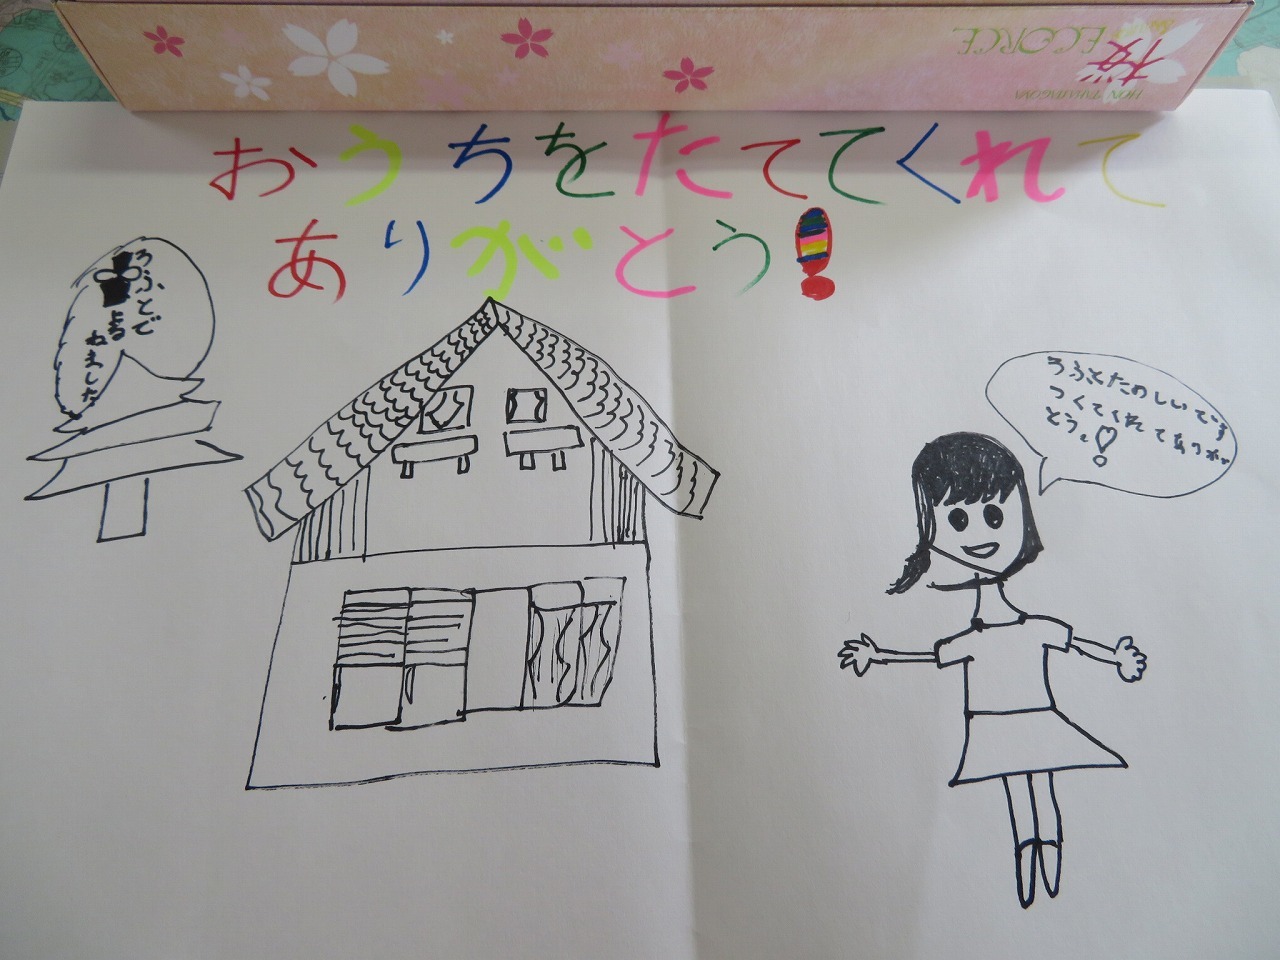 HON TAKASAGOYA
桜
ECORCE
おうちをたててくれて
ありがとう!
ろふとで
よる
ねました
ろふとたのしいです
つくてくれてありが
とう。♡!